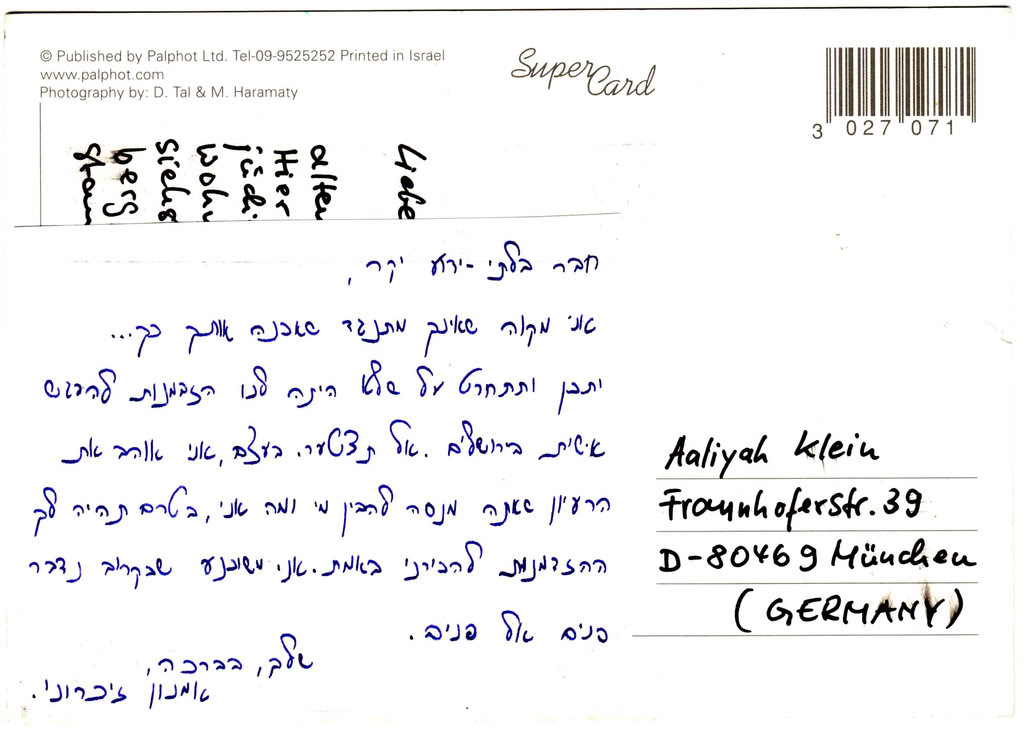 © Published by Palphot Ltd. Tel-09-9525252 Printed in Israel
www.palphot.com
Photography by: D. Tal & M. Haramaty
Super Card
3 027 071
Liebe
alten
Hier
jüdi
Wohn
Sieh
berg
חבר בלתי-ידוע יקר,
אני מקוה שאינך מתנגד שאכנה אותך כך...
יתכן ותתחרט על שלא היתה לנו הזדמנות להפגש
אישית בירושלים. אל תצטער. בעצם, אני אוהב את
הרעיון שאתה מנסה להבין מי ומה אני, בטרם תהיה לך
ההזדמנות להכירני באמת. אני משוכנע שבקרוב נדבר
פנים אל פנים.
שלך, בברכה,
אמנון זיכרוני.
Aaliyah Klein
Fraunhoferstr. 39
D-80469 München
(GERMANY)